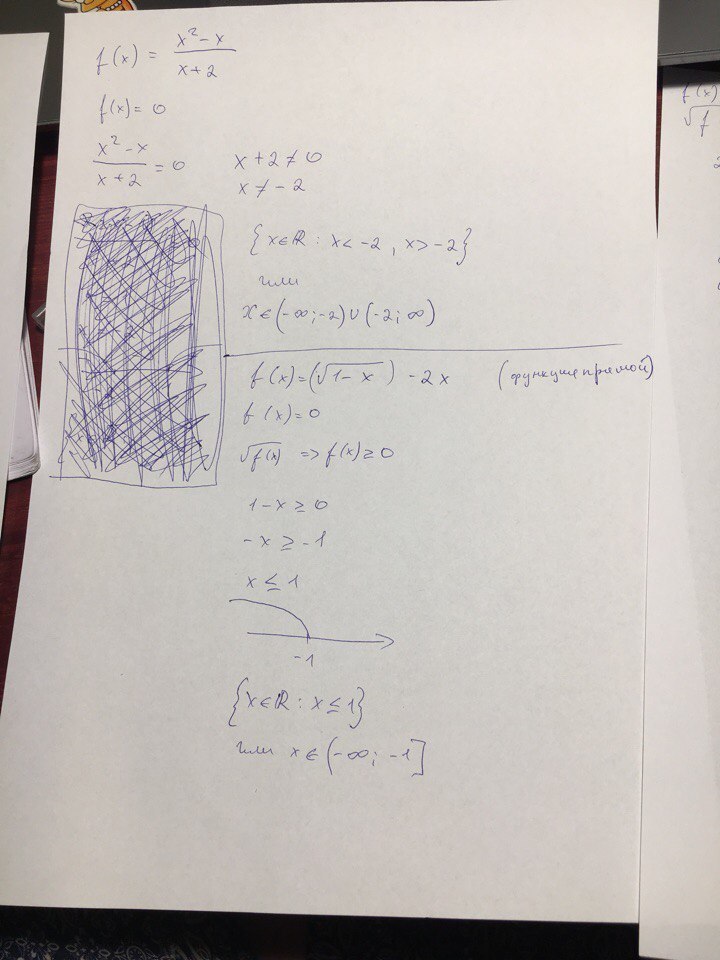 f(x) = (x² - x)/(x + 2)
f(x) = 0
(x² - x)/(x + 2) = 0
x + 2 ≠ 0
x ≠ -2
{x∈ℝ : x < -2 , x > -2}
или
x ∈ (-∞; -2) ∪ (-2; ∞)
f(x) = (√(1 - x)) - 2x (функция прямой)
f(x) = 0
√f(x) => f(x) ≥ 0
1 - x ≥ 0
-x ≥ -1
x ≤ 1
-1
{x∈ℝ : x ≤ 1}
или x ∈ (-∞; -1]
f(x)
√f